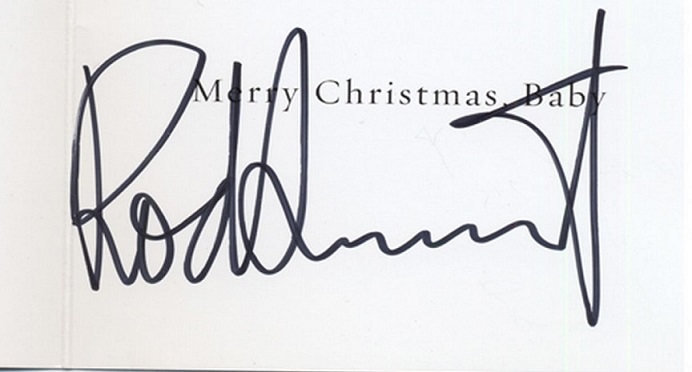 Merry Christmas, Baby
Rod